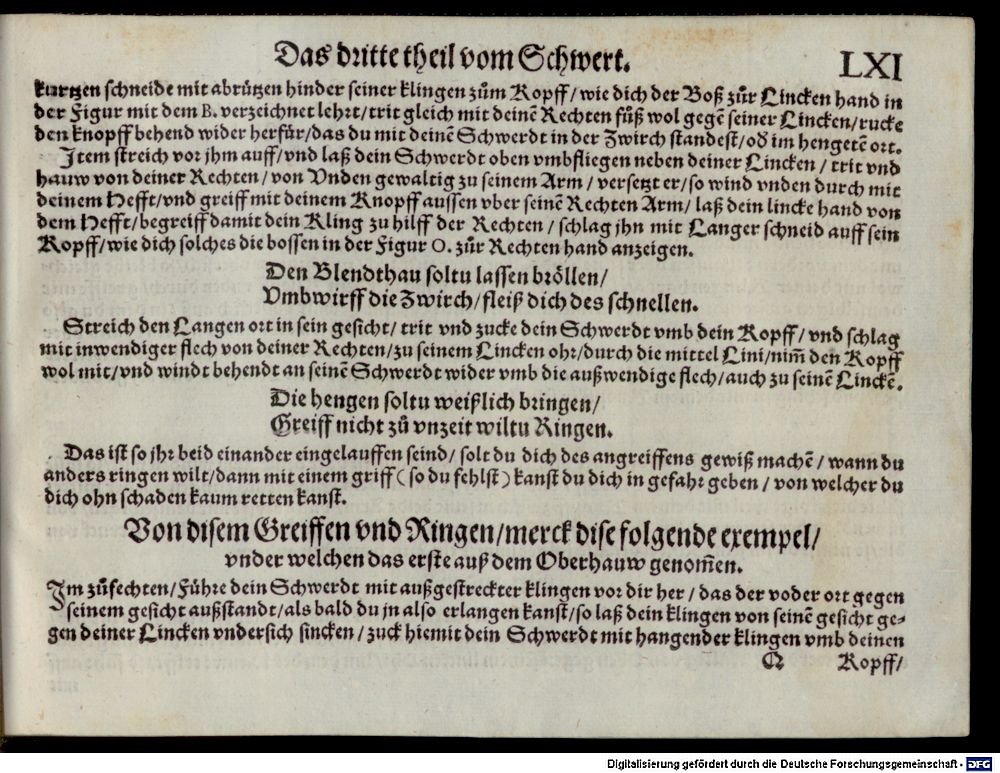 Das dritte theil vom Schwert. LXI
kurtzen schneide mit abrützen hinder seiner klingen zům Kopff/ wie dich der Boß zůr Lincken hand in
der Figur mit dem B. verzeichnet lehrt/ trit gleich mit deinē Rechten fůß wol gegē seiner Lincken/ rucke
den knopff behend wider herfür/ das du mit deinē Schwerdt in der Zwirch standest/ oď im hengetē ort.
Item streich vor jhm auff/ vnd laß dein Schwerdt oben vmbfliegen neben deiner Lincken / trit vnd
hauw von deiner Rechten / von Vnden gewaltig zu seinem Arm / versetzt er/ so wind vnden durch mit
deinem Hefft/ vnd greiff mit deinem Knopff aussen vber seinē Rechten Arm/ laß dein lincke hand von
dem Hefft/ begreiff damit dein Kling zu hilff der Rechten / schlag jhn mit Langer schneid auff sein
Kopff/ wie dich solches die bossen in der Figur O. zůr Rechten hand anzeigen.
Den Blendthau soltu lassen bröllen/
Vmbwirff die Zwirch/ fleiß dich des schnellen.
Streich den Langen ort in sein gesicht/ trit vnd zucke dein Schwerdt vmb dein Kopff/ vnd schlag
mit inwendiger flech von deiner Rechten/ zu seinem Lincken ohr/ durch die mittel Lini/ nim̄ den Kopff
wol mit/ vnd windt behendt an seinē Schwerdt wider vmb die außwendige flech/ auch zu seinē Linckē.
Die hengen soltu weißlich bringen/
Greiff nicht zů vnzeit wiltu Ringen.
Das ist so jhr beid einander eingelauffen seind/ solt du dich des angreiffens gewiß machē/ wann du
anders ringen wilt/ dann mit einem griff (so du fehlst) kanst du dich in gefahr geben / von welcher du
dich ohn schaden kaum retten kanst.
Von disem Greiffen vnd Ringen/ merck dise folgende exempel/
vnder welchen das erste auß dem Oberhauw genom̄en.
Im zůfechten/ Führe dein Schwerdt mit außgestreckter klingen vor dir her / das der voder ort gegen
seinem gesicht außstandt/ als bald du jn also erlangen kanst/ so laß dein klingen von seinē gesicht ge=
gen deiner Lincken vndersich sincken / zuck hiemit dein Schwerdt mit hangender klingen vmb deinen
Q Kopff/
Digitalisierung gefördert durch die Deutsche Forschungsgemeinschaft - DFG